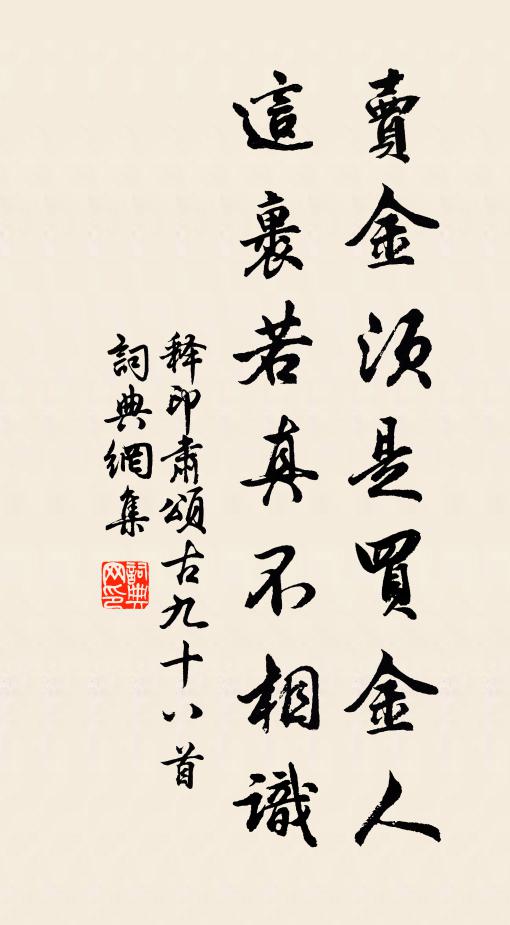 賣金須是買金人
這裏若真不相識
释印肅頌古九十八首
詞典網集
詞典網印